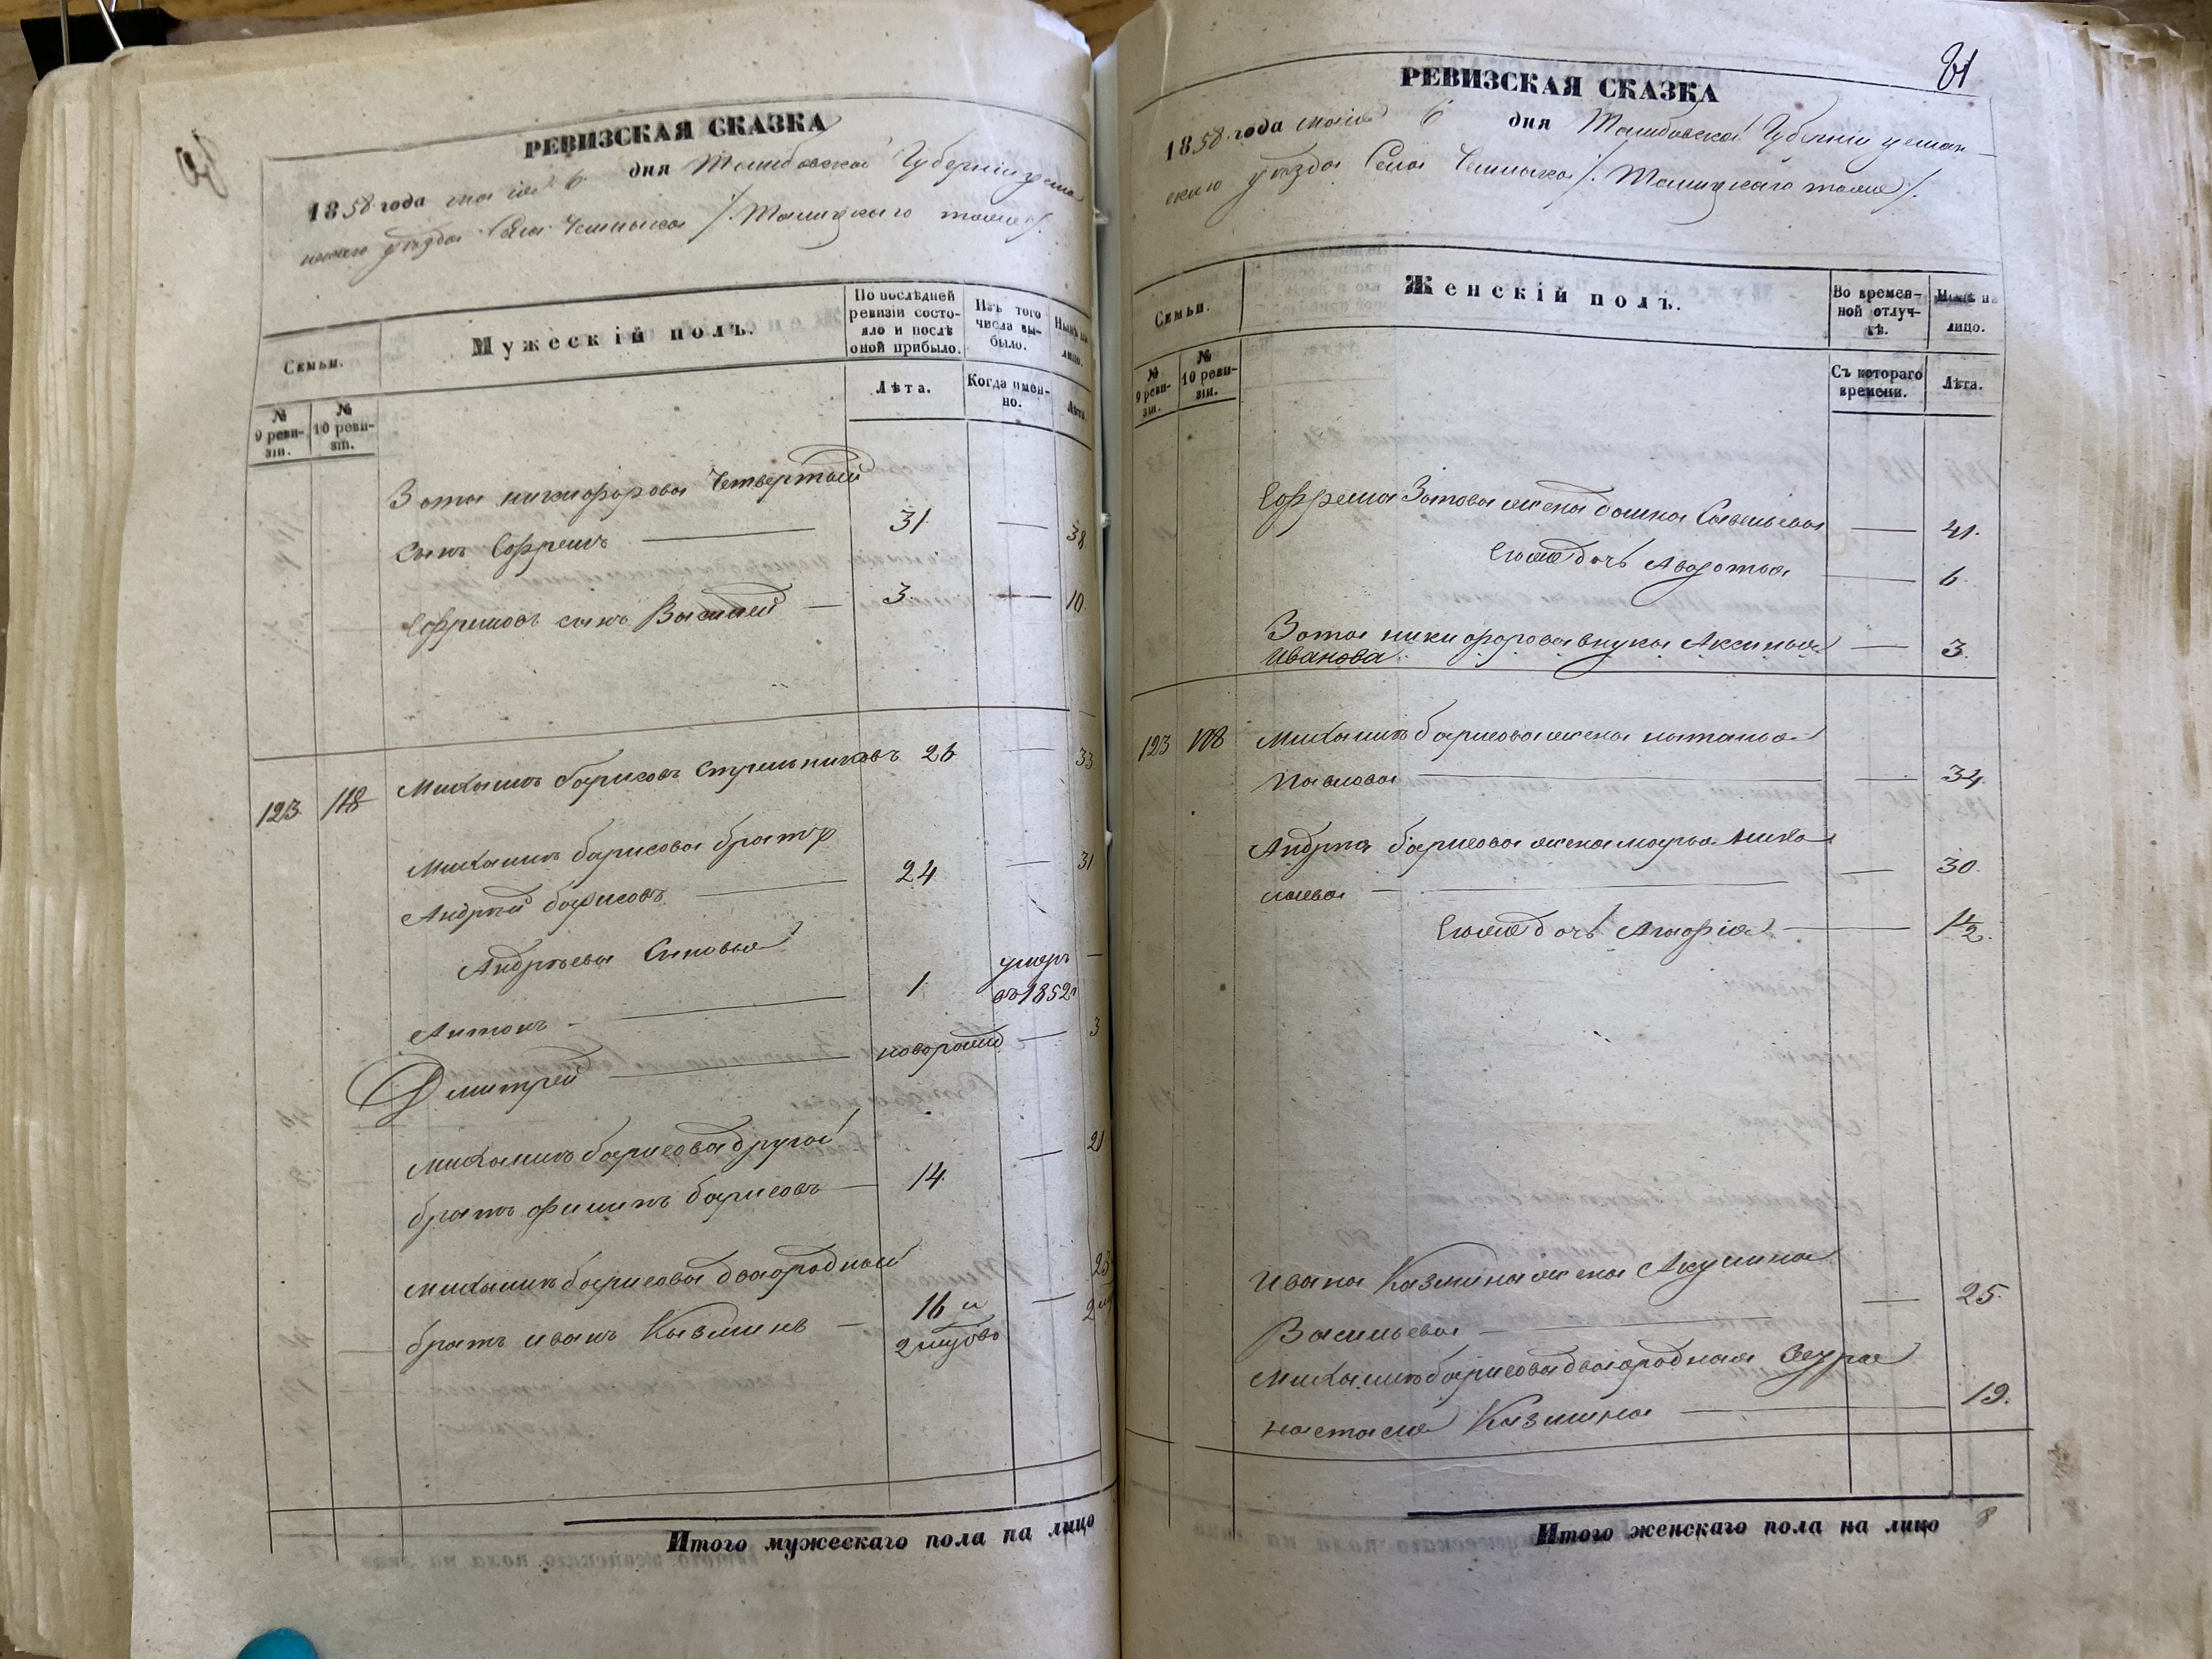 РЕВИЗСКАЯ СКАЗКА
1858 года маія 6 дня Тамбовской Губерніи усман
скаго уѣзда Села
Семьи.
Мужескій полъ.
По послѣдней ревизіи состояло и послѣ оной прибыло.
Изъ того числа выбыло.
Нынѣ на лицо.
№ 9 ревизіи.
№ 10 ревизіи.
Лѣта.
Когда именно.
Лѣта.
Зота никифорова Четвертый
сынъ Ефремъ 31. — 38
Ефремовъ сынъ Василей — 3. — 10.
123. 118 Михаилъ борисовъ Стрельниковъ 26 — 33
Михаила борисова братъ
Андрей борисовъ 24 — 31
Андреева Сыновья
Антонъ 1. умеръ въ 1852 —
Дмитрей новорожд — 3
Михаила борисова другой
братъ филипъ борисовъ 14. — 21
Михаила борисова двоюродный
братъ иванъ Казминъ — 16 и — 23
РЕВИЗСКАЯ СКАЗКА
81
1858 года маія 6 дня Тамбовской Губерніи усман
скаго уѣзда Села
Семьи.
Женскій полъ.
Во временной отлучкѣ.
Нынѣ на лицо.
№ 9 ревизіи.
№ 10 ревизіи.
Съ котораго времени.
Лѣта.
Ефрема Зотова жена домна Савельева — 41.
Ево дочь Авдотья — 6.
Зота никифорова внука Аксинья — 3.
Иванова
123 118 Михаила борисова жена наталья
Павлова — 34.
Андрея борисова жена марья Нико
лаева — 30.
дочь — 1½.
Ивана Казмина жена Акулина
Васильева — 25.
Михаила борисова двоюродная Сестра
настасья Казмина — 19.
Итого мужескаго пола на лицо
Итого женскаго пола на лицо 8